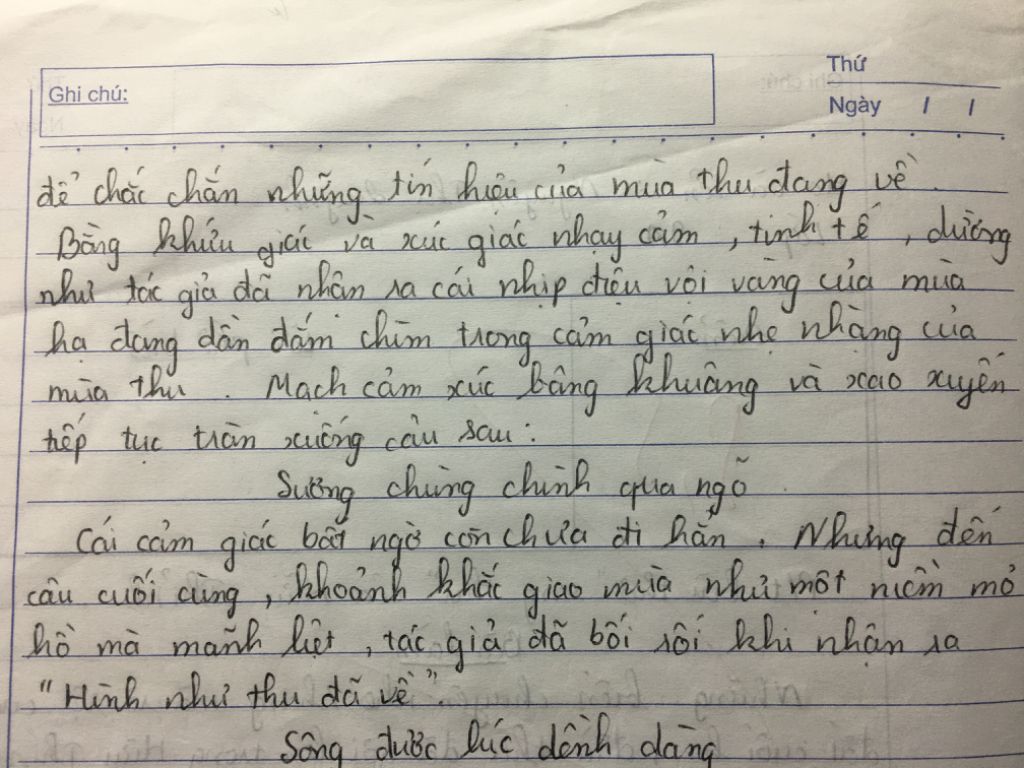 Thứ
Ghi chú:
Ngày / /
để chắc chắn những tín hiệu của mùa thu đang về.
Bằng khứu giác và xúc giác nhạy cảm, tinh tế, dường
như tác giả đã nhận ra cái nhịp điệu vội vàng của mùa
hạ đang dần đắm chìm trong cảm giác nhẹ nhàng của
mùa thu. Mạch cảm xúc bâng khuâng và xao xuyến
tiếp tục tràn xuống câu sau:
Sương chùng chình qua ngõ.
Cái cảm giác bất ngờ còn chưa đi hẳn. Nhưng đến
câu cuối cùng, khoảnh khắc giao mùa như một niềm mơ
hồ mà mãnh liệt, tác giả đã bối rối khi nhận ra
"Hình như thu đã về".
Sông được lúc dềnh dàng